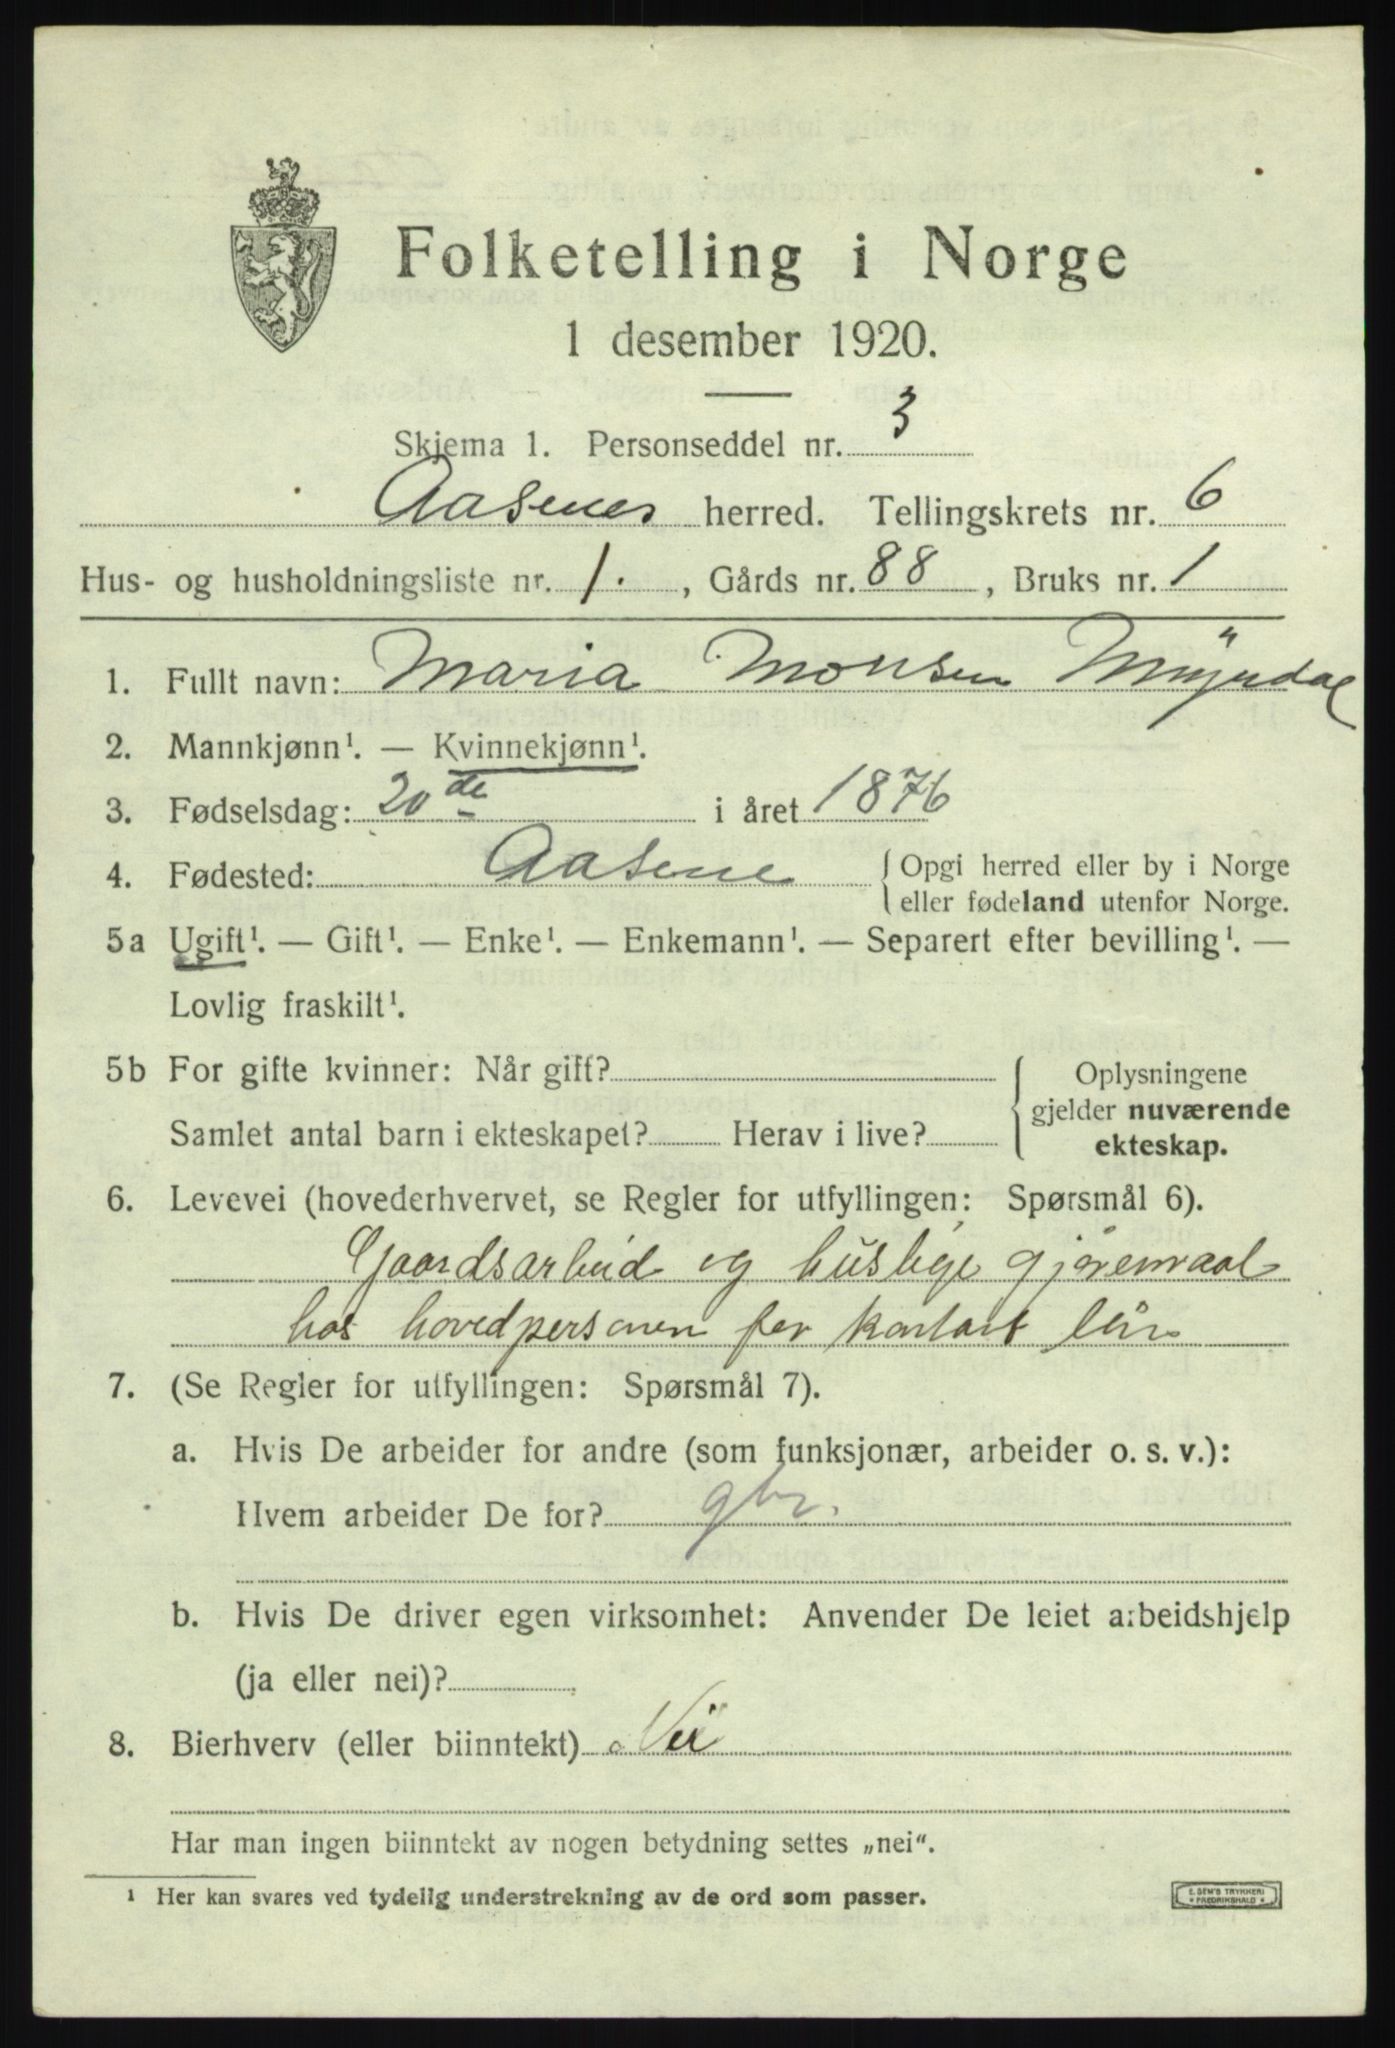 Folketelling i Norge
1 desember 1920.
Skjema 1. Personseddel nr. 3
Aasenes herred. Tellingskrets nr. 6
Hus- og husholdningsliste nr. 1. , Gårds nr. 88 , Bruks nr. 1
1. Fullt navn: Maria Monsen Myrdal
2. Mannkjønn¹. — Kvinnekjønn¹.
3. Fødselsdag: 20de i året 1876
4. Fødested: Aasene { Opgi herred eller by i Norge
eller fødeland utenfor Norge.
5a Ugift¹. — Gift¹. — Enke¹. — Enkemann¹. — Separert efter bevilling¹. —
Lovlig fraskilt¹.
5b For gifte kvinner: Når gift? { Oplysningene
gjelder nuværende
Samlet antal barn i ekteskapet? Herav i live? ekteskap.
6. Levevei (hovederhvervet, se Regler for utfyllingen: Spørsmål 6).
Gaardsarbeid og huslige gjøremaal
hos hovedpersonen for kontant løn
7. (Se Regler for utfyllingen: Spørsmål 7).
a. Hvis De arbeider for andre (som funksjonær, arbeider o. s. v.):
Hvem arbeider De for? gbr.
b. Hvis De driver egen virksomhet: Anvender De leiet arbeidshjelp
(ja eller nei)?
8. Bierhverv (eller biinntekt) Nei
Har man ingen biinntekt av nogen betydning settes „nei“.
¹ Her kan svares ved tydelig understrekning av de ord som passer.
E. SEM'S TRYKKERI
* FREDRIKSHALD *